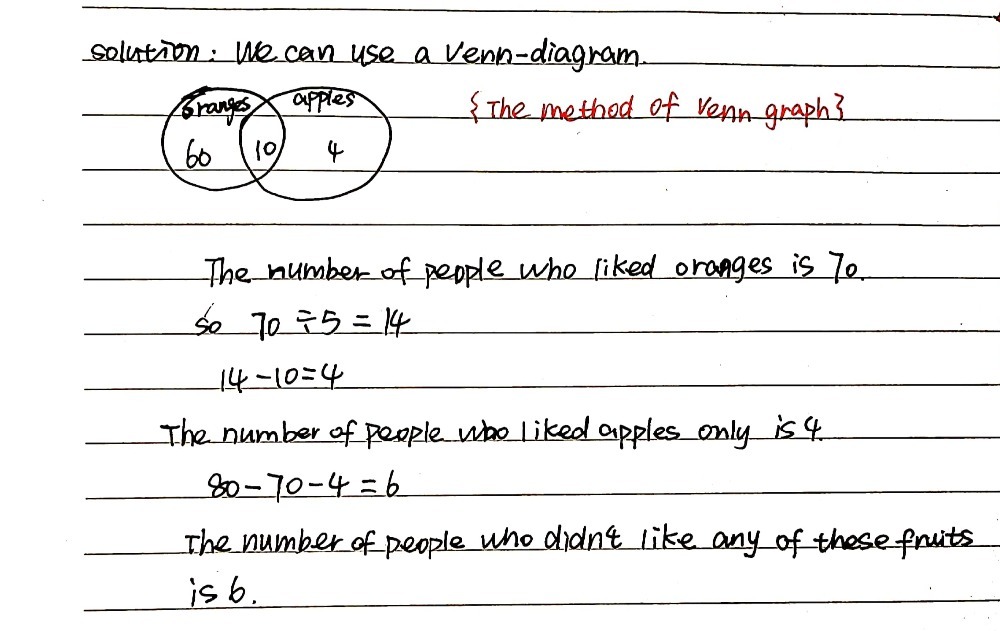 solution: We can use a Venn-diagram.
oranges apples {The method of Venn graph}
60 10 4
The number of people who liked oranges is 70.
so 70 ÷ 5 = 14
14 - 10 = 4
The number of people who liked apples only is 4.
80 - 70 - 4 = 6
The number of people who didn't like any of these fruits
is 6.